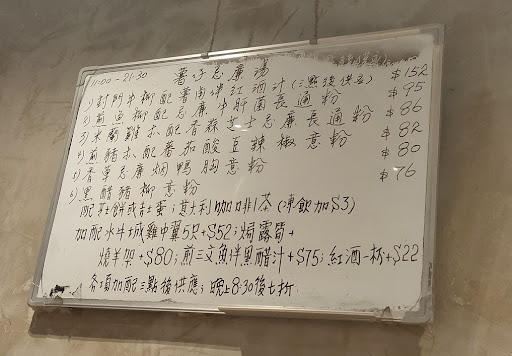 11:00-21:30 薯子忌廉湯
1) 封門牛柳配薯南津紅酒汁(三點後供应) $152
2) 煎魚柳配忌廉牛肝菌長通粉 $95
3) 米蘭雞扒配香蒜芝士忌廉長通粉 $86
4) 煎豬扒配蕃茄酸豆辣椒意粉 $82
5) 香草忌廉烟鴨胸意粉 $80
6) 黑醋豬柳意粉 $76
配班餅或班蛋;意大利咖啡1茶(凍飲加$3)
加配水牛城雞中翼5只+$52;焗露筍+
燒羊架+$80;煎三文魚拌黑醋汁+$75;紅酒一杯+$22
各項加配三點後供應;晚上8:30後七折